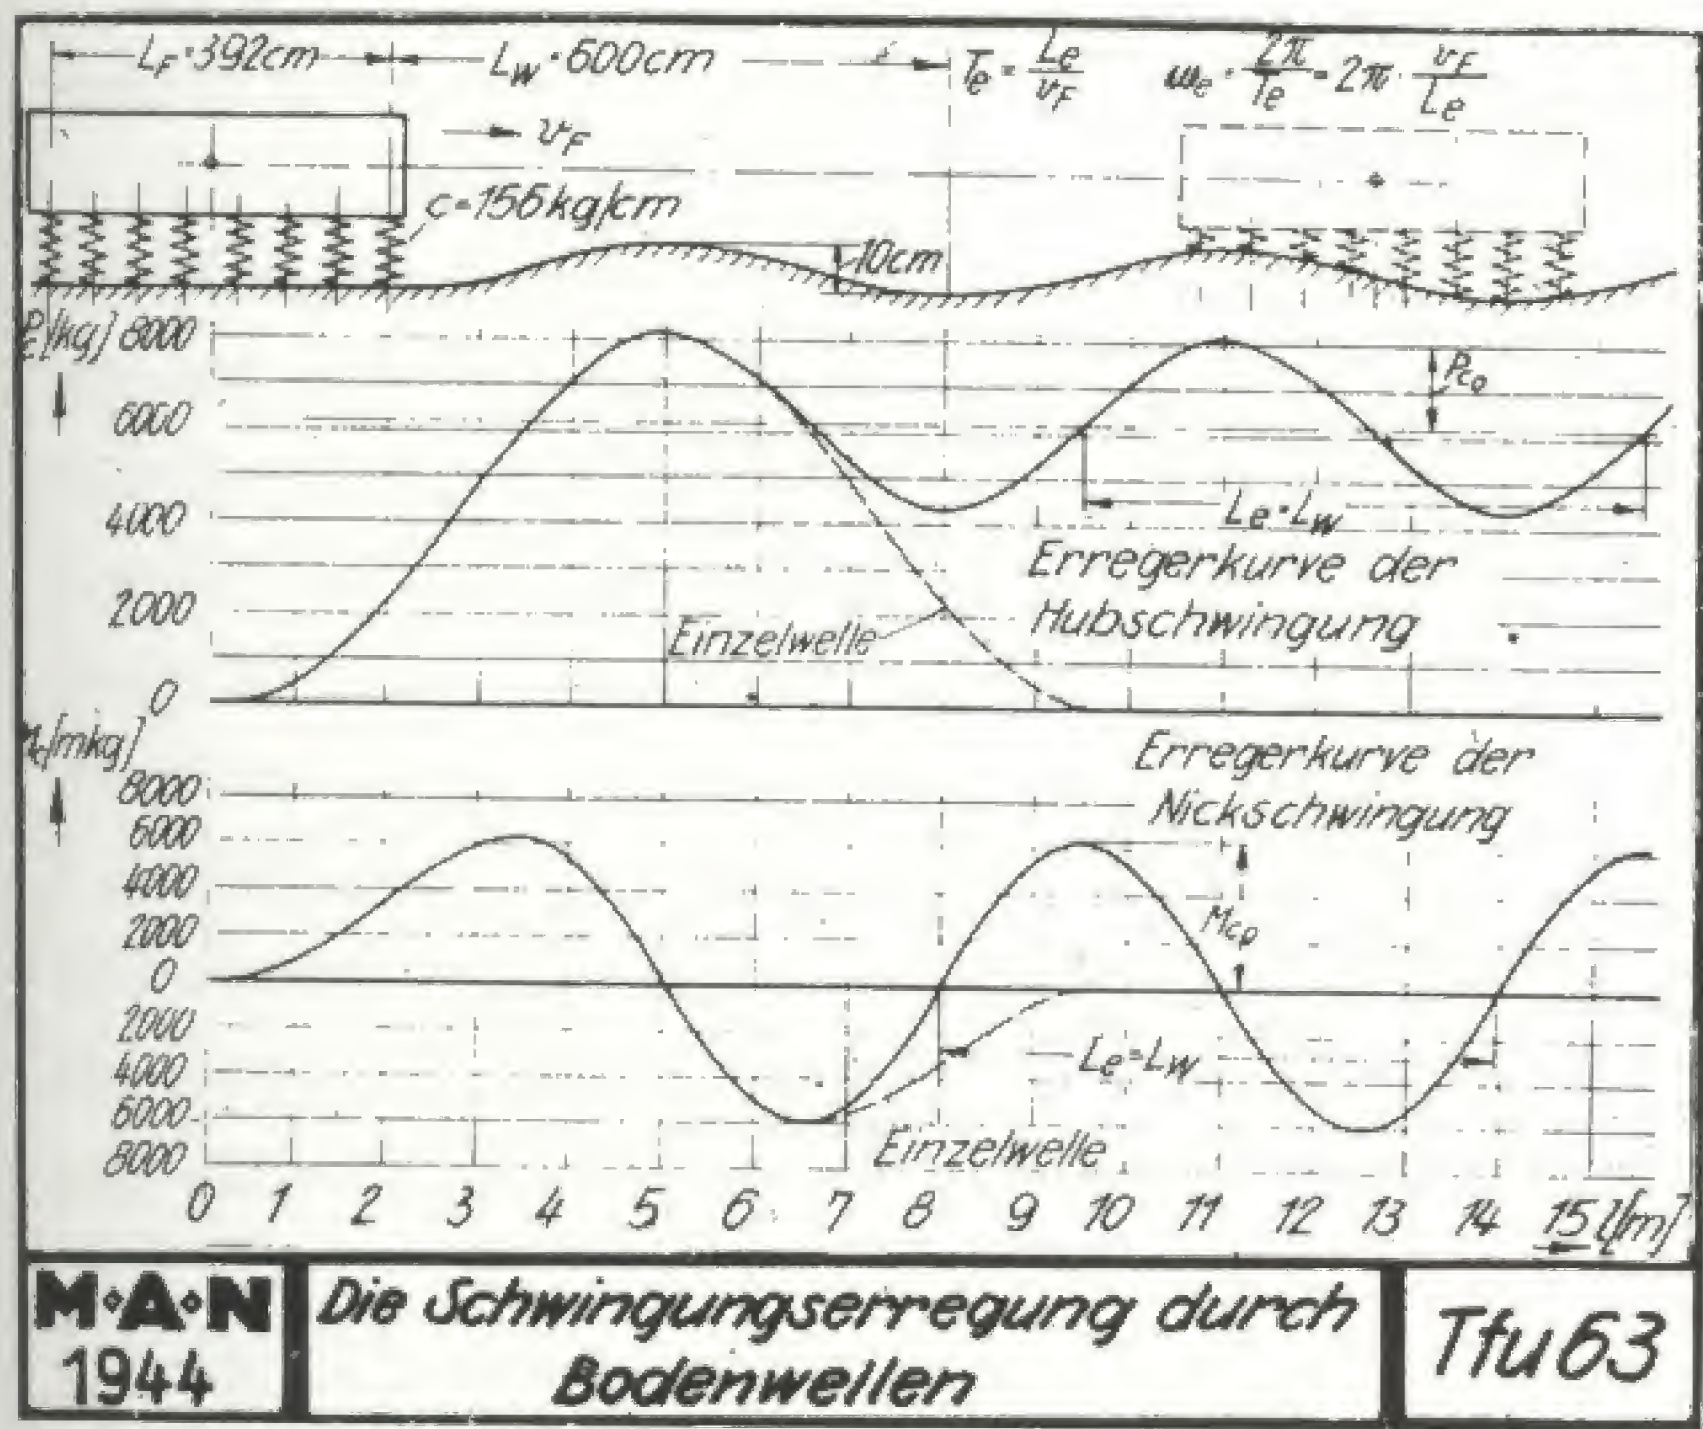 L_F = 392cm
L_W = 600cm
T_e = L_e / v_F
ω_e = 2π / T_e = 2π · v_F / L_e
v_F
c=156kg/cm
10cm
[kg]
8000
6000
4000
2000
0
L_e = L_W
Erregerkurve der
Hubschwingung
Einzelwelle
[mkg]
8000
6000
4000
2000
0
2000
4000
6000
8000
Erregerkurve der
Nickschwingung
L_e = L_W
Einzelwelle
0 1 2 3 4 5 6 7 8 9 10 11 12 13 14 15 l[m]
M·A·N
1944
Die Schwingungserregung durch
Bodenwellen
Tfu 63